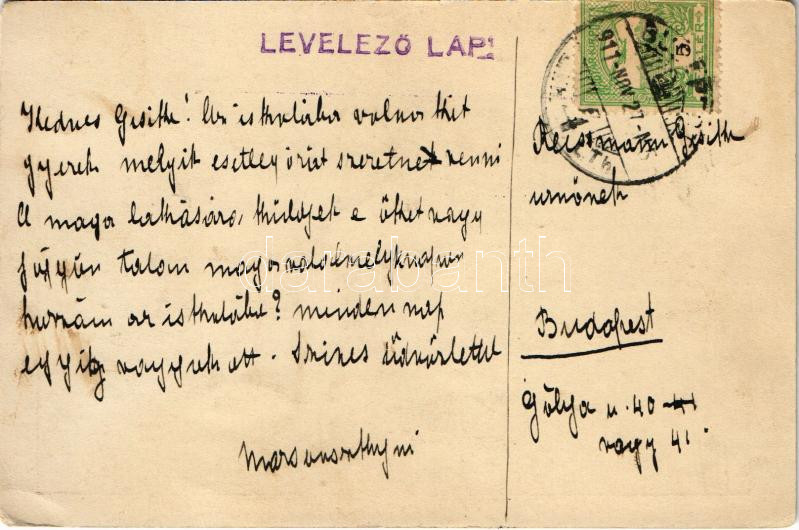 LEVELEZŐ LAP!
911 NOV 27
Kedves Gisike! Az iskolába volna két
gyerek melyik esetleg órát szeretnek venni
A maga lakására, küldjek e őket vagy
jöjjön talán maga valamelyik napon
hozzám az iskolába? minden nap
egyig vagyok ott. Szives üdvözlettel
Gisike
urnőnek
Budapest
Gólya u. 40 41
vagy 41
darabanth